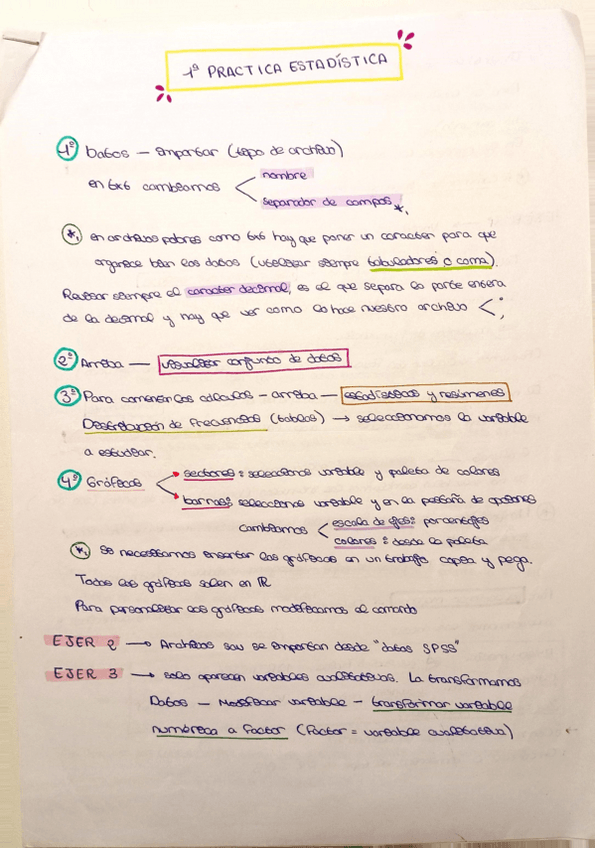 1ª PRACTICA ESTADÍSTICA
1º Datos — Importar (tipo de archivo)
en txt cambiamos < nombre
separador de campos *1
*1 en archivos pobres como txt hay que poner un caracter para que
organice bien los datos (utilizar siempre tabuladores o coma).
Revisar siempre el caracter decimal, es el que separa la parte entera
de la decimal y hay que ver como lo hace nuestro archivo < . ,
2º Arriba — visualizar conjunto de datos
3º Para comenzar los cálculos - arriba — estadísticos y resúmenes
Distribución de Frecuencias (tablas) → seleccionamos la variable
a estudiar.
4º Gráficos
sectores: seleccionas variable y paleta de colores
barras: seleccionas variable y en la pestaña de opciones
cambiamos < escala de ejes: porcentajes
colores: desde la paleta
* Si necesitamos insertar los gráficos en un trabajo copia y pega.
Todos los gráficos salen en R
Para personalizar los gráficos modificamos el comando
EJER 2 → Archivos sav se importan desde "datos SPSS"
EJER 3 → solo aparecen variables cualitativas. La transformamos
Datos — Modificar variable — transformar variable
numérica a factor (factor = variable cualitativa)